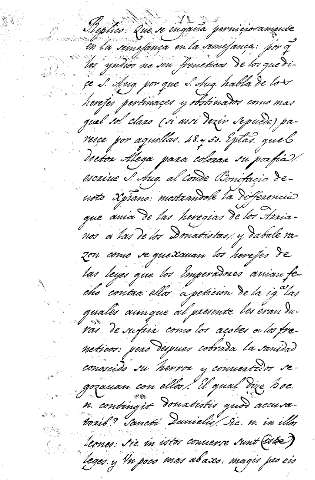 Replico: Que se engaña perniciosamente
en la semejança en la semejança: por q̃
los yndios no son de los que di-
ce S. Aug por que S. Aug. habla de los
herejes pertinaces y obstinados como mas
que el sol claro (si assi dezir se puede) pa-
resce por aquellas. 48. y 50. Epl̃as que el
doctor Alega para colorar su porfia
escrive S. Aug. al Conde Bonifacio de-
voto Xp̃iano: mostrandole la differencia
que avia de las heregias de los Arria-
nos a las de los Donatistas, y dabale ra-
zon como se quexavan los herejes de
las leyes que los Emperadores avian fe-
cho contra ellos a peticion de la igª. las
quales aunque al presente les eran du-
ras de sufrir como los açotes a los fre-
neticos: pero despues cobrada la sanidad
conoscido su herror y convertidos se
gozavan con ellas. El qual dize hoc
n. contingit donatistis quod accusa-
torib.ˢ Sancti Danielis, sic. n. in illos
leones: sic in istos converse sunt
leges. y Un poco mas abaxo. magis pro eis